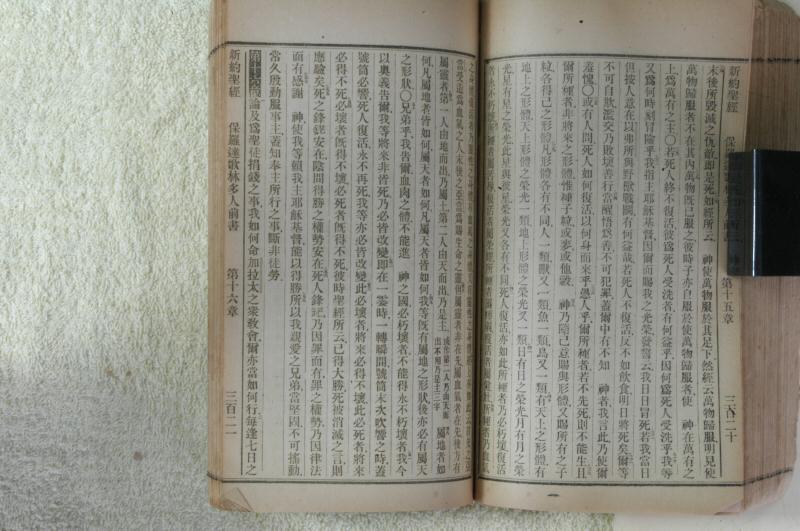 新約聖經
第十五章
三百二十
末後所毀滅之仇敵卽是死如經所云 神使萬物歸服於其足下然經云萬物歸服明見使
萬物歸服者不在其內萬物旣已服之彼時子亦自服於使萬物歸服者使 神在萬有之
上爲萬有之主〇若死人終不復活彼爲死人受洗者有何益乎因何爲死人受洗乎我等
又爲何時刻冒險乎我指主耶穌基督因爾而賜我之光榮發誓云我日日冒死若我當日
但按人意在以弗所與野獸戰鬭有何益哉若死人不復活反不如飲食明日將死矣爾等
不可自欺濫交乃敗壞善行當醒悟爲善不可犯罪蓋爾中有不知 神者我言此乃使爾
羞愧〇或有人問死人如何復活以何身而來乎愚人乎爾所種者若不先死則不能生且
爾所種者非將來之形體惟種子粒或麥或他穀 神乃隨己意賜與形體又賜所有之子
粒各得己之形體凡形體各有不同人一類獸又一類魚一類鳥又一類有天上之形體有
地上之形體天上形體之榮光一類地上形體之榮光又一類日有日之榮光月有月之榮
光星有星之榮光此星與彼星榮光又各有不同死人復活亦如此所種者乃必朽壞復活
當受造爲血氣之人末後之亞當爲賜生命之靈但屬靈者非在先屬血氣者在先後方有
屬靈者第一人由地而出乃屬土第二人由天而出乃是主 屬地者如
何凡屬地者皆如何屬天者如何凡屬天者皆如何我等旣有屬地之形狀後亦必有屬天
之形狀〇兄弟乎我告爾血肉之體不能進 神之國必朽壞者不能得永不朽壞者我今
以奧義吿爾我等將來非皆死乃必皆改變卽在一霎時一轉瞬間號筒末次吹響之時蓋
號筒必響死人復活永不再死我等亦必皆改變此必壞者將來必得不壞此必死者將來
必得不死必壞者旣得不壞必死者旣得不死彼時聖經所云已得大勝死被消滅之言則
應驗矣死之鋒鋩安在陰間得勝之權勢安在死人鋒鋩乃因罪而有罪之權勢乃因律法
而有感謝 神使我等賴我主耶穌基督能以得勝所以我親愛之兄弟當堅固不可搖動
常久殷勤服事主蓋知奉主所行之事斷非徒勞
第十六章論及爲聖徒捐錢之事我如何命加拉太之衆敎會爾亦當如何行每逢七日之
新約聖經 保羅達歌林多人前書 第十六章 三百二一